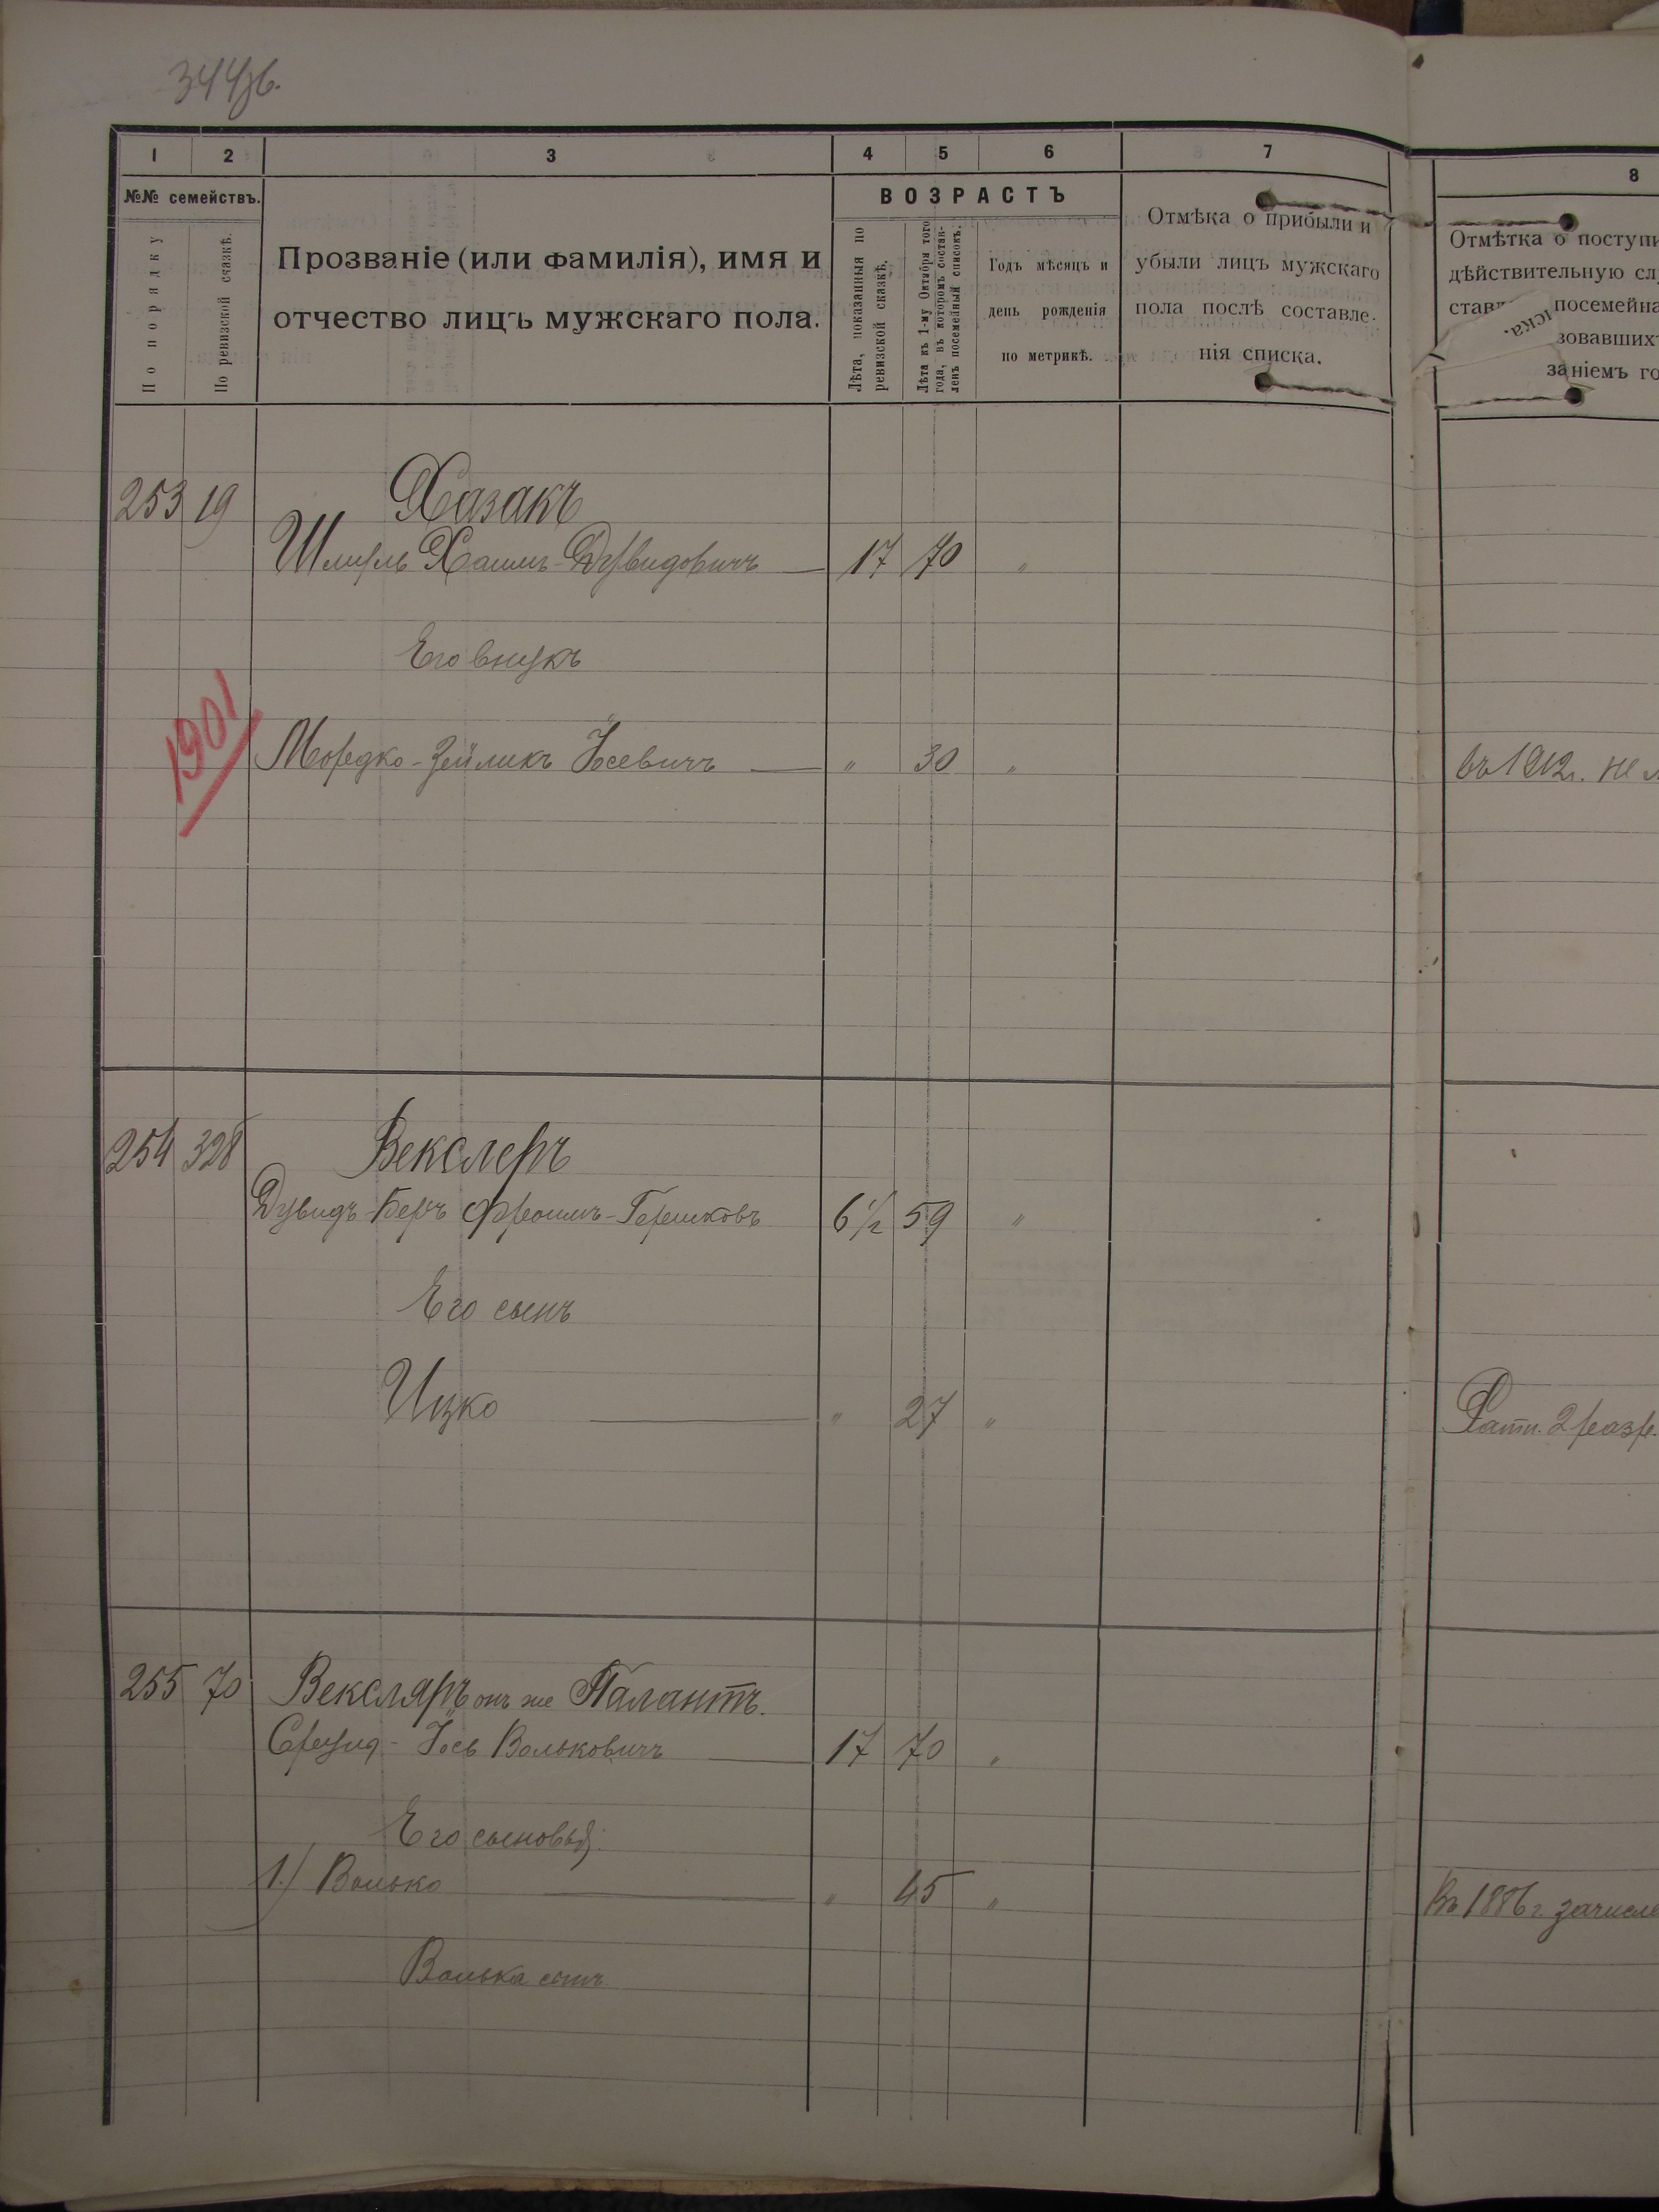 344об.
1 2 3 4 5 6 7 8
№№ семействъ.
По порядку
По ревизской сказкѣ.
Прозваніе (или фамилія), имя и
отчество лицъ мужскаго пола.
ВОЗРАСТЪ
Лѣта, показанныя по
ревизской сказкѣ.
Лѣта къ 1-му Октября того
года, въ которомъ состав-
ленъ посемейный списокъ.
Годъ мѣсяцъ и
день рожденія
по метрикѣ.
Отмѣка о прибыли и
убыли лицъ мужскаго
пола послѣ составле-
нія списка.
Отмѣтка о поступи
дѣйствительную сл
став посемейна
зовавших
заніемъ го
иска.
253 19 Хазакъ
Шмуль Хаимъ-Дувидовичъ — 17 70 "
Его внукъ
1901
Мордко-Зейликъ Іосевичъ — " 30 " въ 1912г. не
254 328 Векслеръ
Дувидъ-Беръ Фроимъ-Гершковъ 6½ 59 "
Его сынъ
Ицко — " 27 " Ратн. 2 разр.
255 70 Векслярь онъ же Палантъ.
Сруид-Іось Вольковичъ — 17 70 "
Его сыновья:
1.) Волько — " 45 " Въ 1886 г. зачисле
Волька сынъ